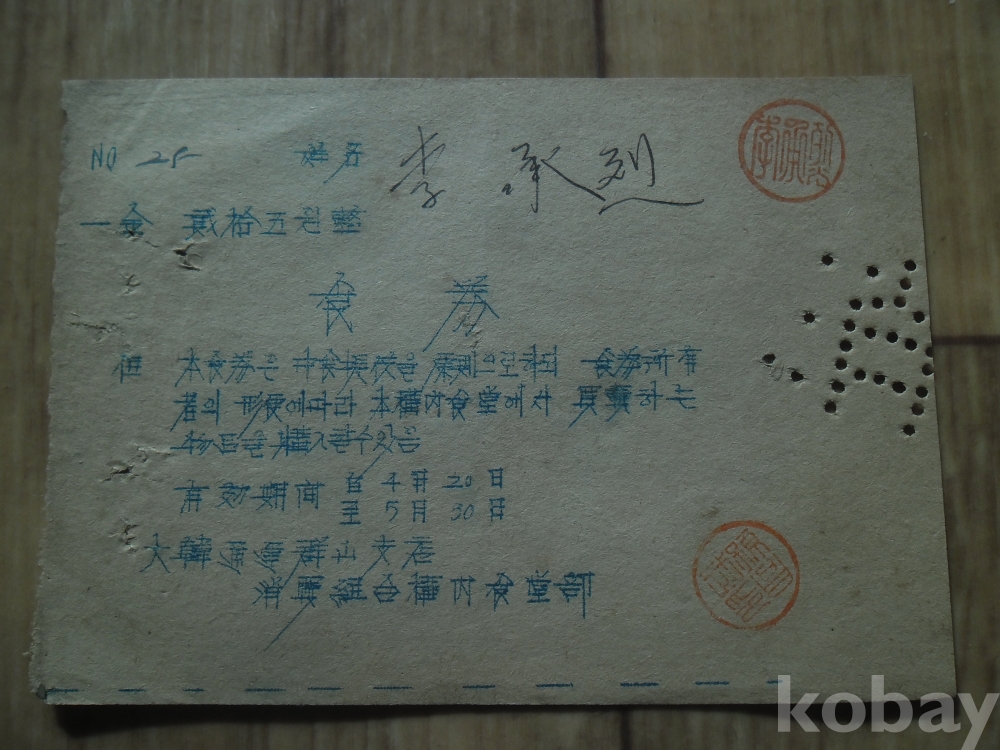 NO 25 姓名 李承烈
一金 貳拾五원整
食券
但 本食券은 中食提供을 原則으로하되 食券所有
者의 形便에따라 本構內食堂에서 販賣하는
物品을 購入할수있음
有効期間 自 4月 20日
至 5月 30日
大韓 群山支店
消費組合構内食堂部
李承烈
kobay